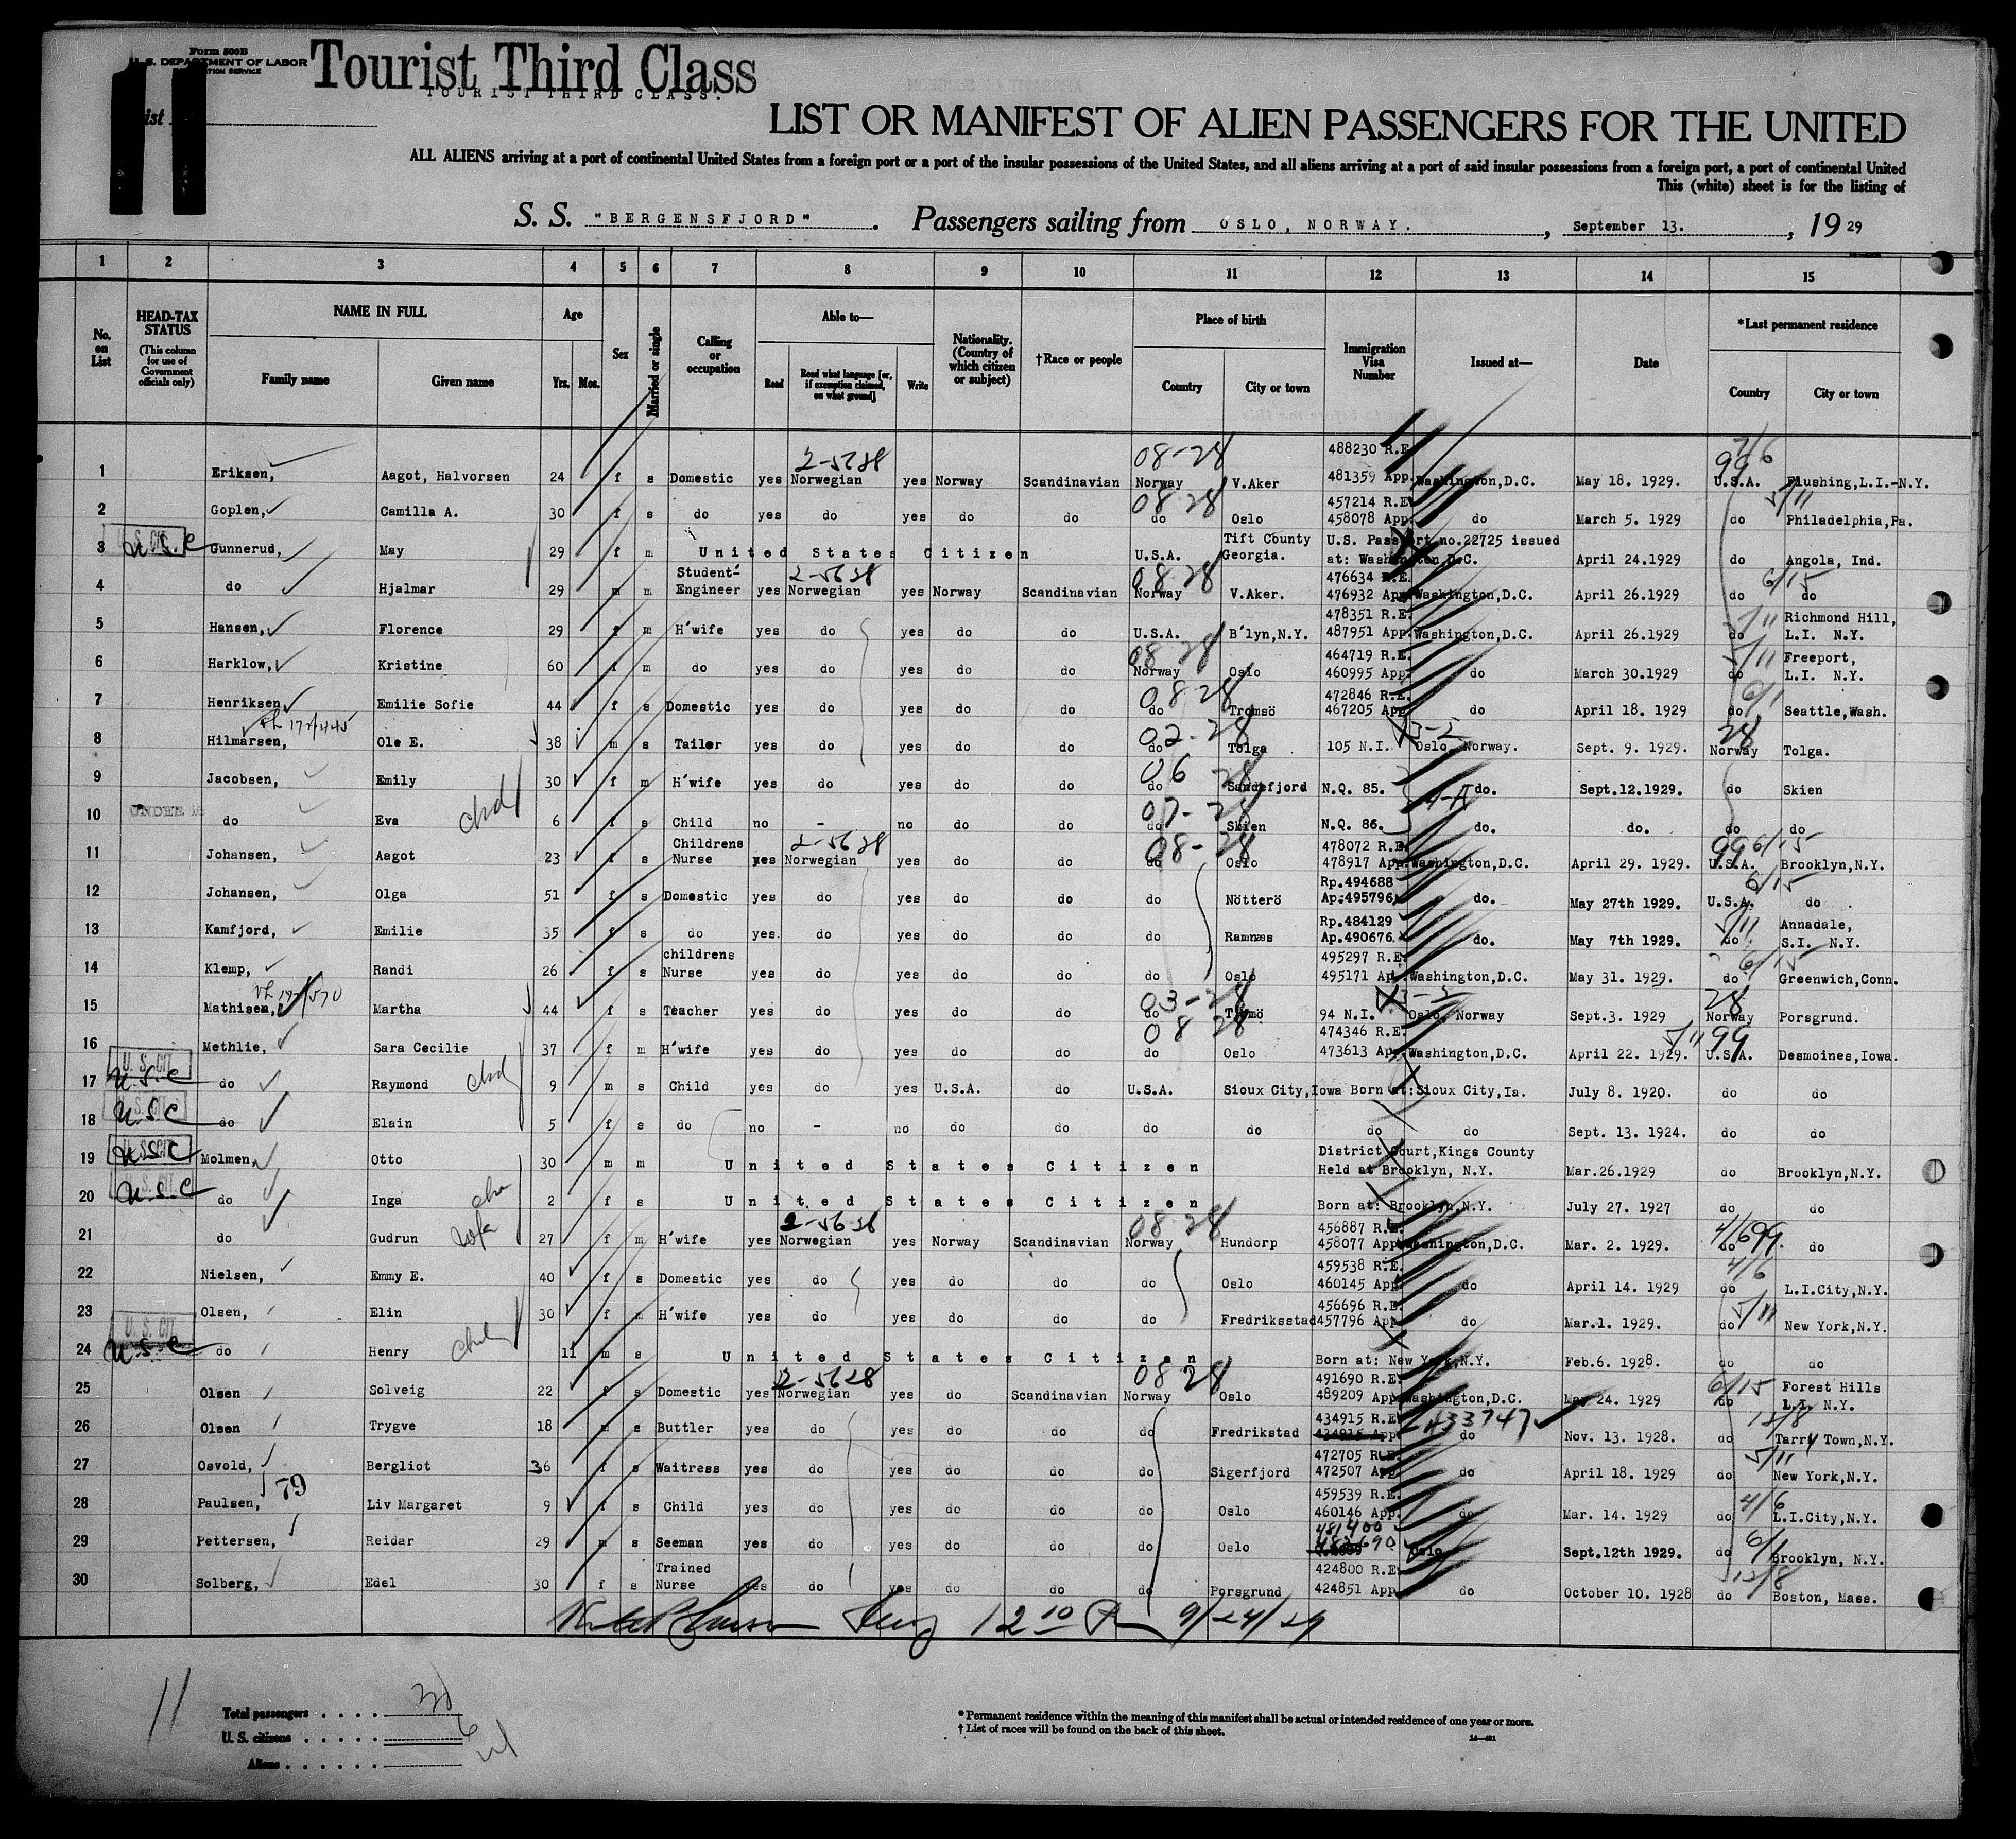 Form 500B
U. S. DEPARTMENT OF LABOR
Tourist Third Class
TOURIST THIRD CLASS.
11
LIST OR MANIFEST OF ALIEN PASSENGERS FOR THE UNITED
ALL ALIENS arriving at a port of continental United States from a foreign port or a port of the insular possessions of the United States, and all aliens arriving at a port of said insular possessions from a foreign port, a port of continental United
This (white) sheet is for the listing of
S. S. "BERGENSFJORD". Passengers sailing from OSLO, NORWAY. , September 13. , 19 29
1 2 3 4 5 6 7 8 9 10 11 12 13 14 15
No. on List
HEAD-TAX STATUS (This column for use of Government officials only)
NAME IN FULL Family name Given name
Age Yrs. Mos.
Sex
Married or single
Calling or occupation
Able to— Read Read what language [or, if exemption claimed, on what ground] Write
Nationality. (Country of which citizen or subject)
†Race or people
Place of birth Country City or town
Immigration Visa Number
Issued at—
Date
*Last permanent residence Country City or town
1 Eriksen, Aagot, Halvorsen 24 f s Domestic yes 2-5628 Norwegian yes Norway Scandinavian 08-28 Norway V.Aker 488230 R.E. 481359 App. Washington,D.C. May 18. 1929. 7/6 99 U.S.A. Flushing,L.I.-N.Y.
2 Goplen, Camilla A. 30 f s do yes do yes do do 08 28 do Oslo 457214 R.E. 458078 App. do March 5. 1929 do 5/11 Philadelphia,Pa.
3 U.S.C Gunnerud, May 29 f m United States Citizen U.S.A. Tift County Georgia. U.S. Passport no.22725 issued at: Washington,D.C. April 24.1929 do Angola, Ind.
4 do Hjalmar 29 m m Student- Engineer yes 2-5628 Norwegian yes Norway Scandinavian 08 28 Norway V.Aker. 476634 R.E. 476932 App. Washington,D.C. April 26.1929 do 6/15 do
5 Hansen, Florence 29 f m H'wife yes do yes do do U.S.A. B'lyn,N.Y. 478351 R.E. 487951 App. Washington,D.C. April 26.1929 5/11 do Richmond Hill, L.I. N.Y.
6 Harklow, Kristine 60 f m do yes do yes do do 08 28 Norway Oslo 464719 R.E. 460995 App. do March 30.1929 5/11 do Freeport, L.I. N.Y.
7 Henriksen, Emilie Sofie 44 f s Domestic yes do yes do do 08 28 do Tromsö 472846 R.E. 467205 App. do April 18. 1929 6/1 do Seattle,Wash.
8 Hilmarsen, Ole E. 38 m s Tailer yes do yes do do 02-28 do Tolga 105 N.I. 3-2 Oslo, Norway. Sept. 9. 1929. 28 Norway Tolga.
9 Jacobsen, Emily 30 f m H'wife yes do yes do do 06 28 do Sandefjord N.Q. 85. do. Sept.12.1929. do Skien
10 UNDER 16 do Eva chd 6 f s Child no - no do do 07-28 do Skien N.Q. 86. do. do. do do
11 Johansen, Aagot 23 f s Childrens Nurse yes 2-5628 Norwegian yes do do 08-28 do Oslo 478072 R.E. 478917 App. Washington,D.C. April 29. 1929. 99 6/15 U.S.A. Brooklyn,N.Y.
12 Johansen, Olga 51 f s Domestic yes do yes do do do Nötterö Rp.494688 Ap.495796 do. May 27th 1929. 6/15 U.S.A. do
13 Kamfjord, Emilie 35 f s do yes. do yes do do do Ramnæs Rp.484129 Ap.490676. do. May 7th 1929. 5/11 do Annadale, S.I. N.Y.
14 Klemp, Randi 26 f s childrens Nurse yes do yes do do do Oslo 495297 R.E. 495171 Ap. Washington,D.C. May 31. 1929. 6/15 do Greenwich,Conn.
15 Mathisen, Martha 44 f s Teacher yes do yes do do 03-28 do Tjömö 94 N.I. Oslo, Norway Sept.3. 1929 28 Norway Porsgrund.
16 Methlie, Sara Cecilie 37 f m H'wife yes do yes do do 08 28 do Oslo 474346 R.E. 473613 Ap. Washington,D.C. April 22. 1929. 5/11 99 U.S.A. Desmoines,Iowa.
17 U. S. CIT. U.S.C do Raymond chd 9 m s Child yes do yes U.S.A. do U.S.A. Sioux City,Iowa Born at:Sioux City,Ia. July 8. 1920. do do
18 U.S.C do Elain 5 f s do no - no do do do do do do Sept. 13. 1924. do do
19 U.S.C Molmen, Otto 30 m m United States Citizen District Court,Kings County Held at Brooklyn, N.Y. Mar.26.1929 do Brooklyn,N.Y.
20 U.S.C do Inga 2 f s United States Citizen Born at: Brooklyn,N.Y. July 27. 1927 do do
21 do Gudrun 27 f m H'wife yes 2-5628 Norwegian yes Norway Scandinavian 08 28 Norway Hundorp 456887 R.E. 458077 App. Washington,D.C. Mar. 2. 1929. 4/6 99. do do
22 Nielsen, Emmy E. 40 f s Domestic yes do yes do do do Oslo 459538 R.E. 460145 App. do April 14. 1929 4/6 do L.I.City,N.Y.
23 Olsen, Elin 30 f m H'wife yes do yes do do do Fredriksstad 456696 R.E. 457796 App. do Mar.1. 1929. 5/11 do New York,N.Y.
24 U. S. CIT. U.S.C do Henry 11 m s United States Citizen Born at: New York,N.Y. Feb.6. 1928. do do
25 Olsen Solveig 22 f s Domestic yes 2-5628 Norwegian yes do Scandinavian 08 28 Norway Oslo 491690 R.E. 489209 App. Washington,D.C. May 24. 1929 6/15 do Forest Hills L.I. N.Y.
26 Olsen Trygve 18 m s Buttler yes do yes do do do Fredrikstad 434915 R.E. 434915 App. 433747 do Nov. 13. 1928. do 12/8 Tarry Town,N.Y.
27 Osvold, Bergliot 36 f s Waitress yes do yes do do do Sigerfjord 472705 R.E. 472507 App. do April 18. 1929 do 5/11 New York,N.Y.
79
28 Paulsen, Liv Margaret 9 f s Child yes do yes do do do Oslo 459539 R.E. 460146 App. do Mar. 14. 1929 do 4/6 L.I.City,N.Y.
29 Pettersen, Reidar 29 m s Seeman yes do yes do do do Oslo 481400 483690 Oslo Sept.12th 1929. do 6/1 Brooklyn, N.Y.
30 Solberg, Edel 30 f s Trained Nurse yes do yes do do do Porsgrund 424800 R.E. 424851 App. do October 10. 1928 do 12/8 Boston, Mass.
12 10 9/24/29
11
Total passengers . . . . 30
U. S. citizens . . . . . 6
Aliens . . . . . . 24
* Permanent residence within the meaning of this manifest shall be actual or intended residence of one year or more.
† List of races will be found on the back of this sheet.